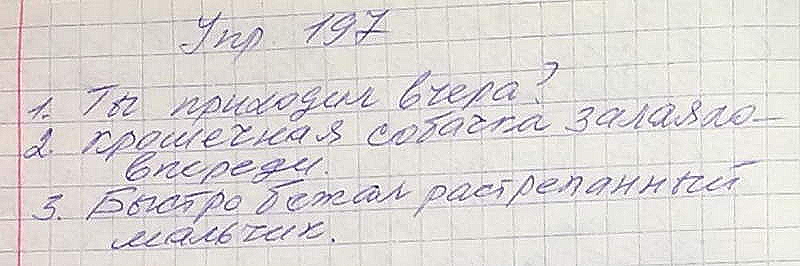 Упр. 197
1. Ты приходил вчера?
2. Крошечная собачка залаяло-
впереди.
3. Быстро бежал растрепанный
мальчик.